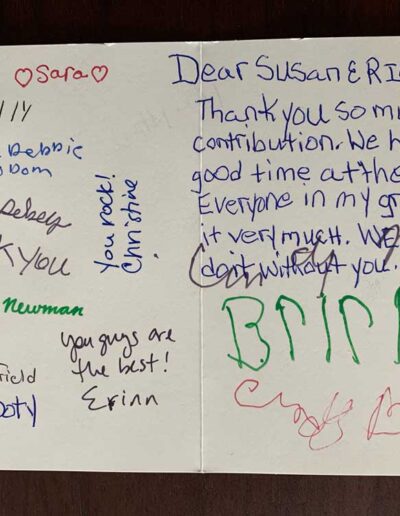 ♡Sara♡
Debbie
Dom
You rock!
Christine
YOU
Newman
you guys are
the best!
Erinn
field
oty
Dear Susan & Ri
Thank you so mu
contribution. We h
good time at the
Everyone in my gr
it very much. We
don't without you.